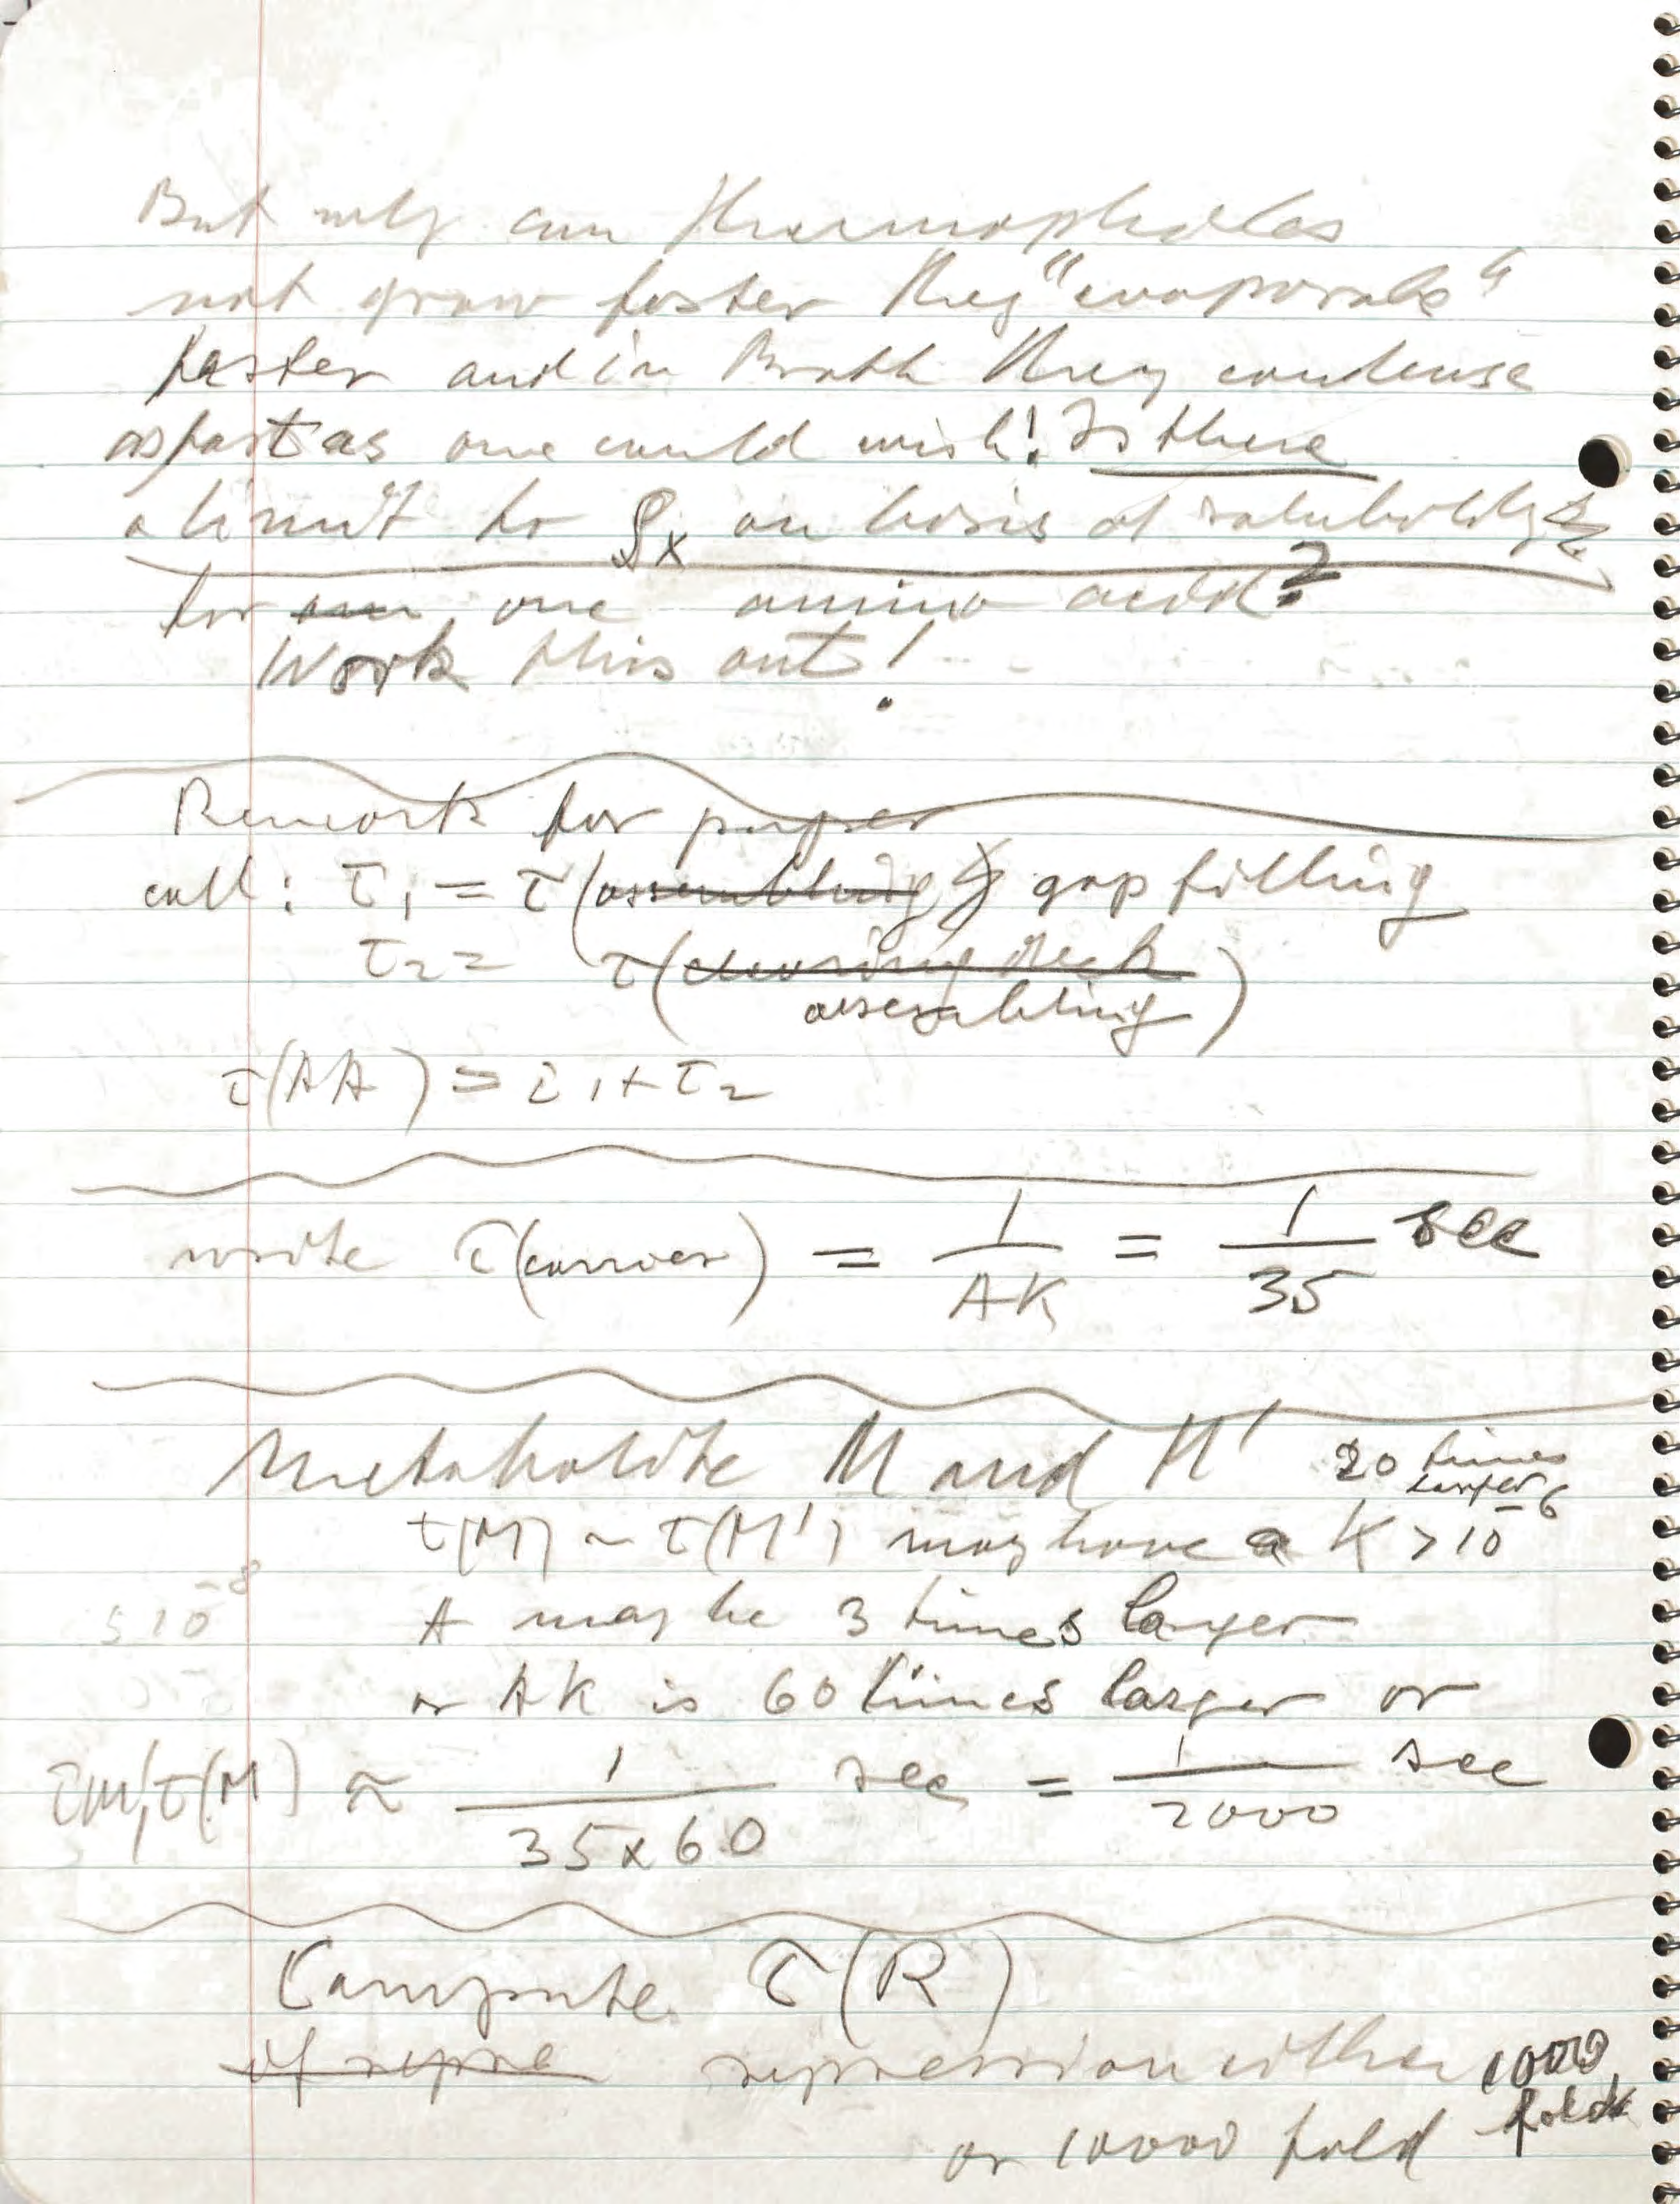 But why can Thermophiles
not grow faster They "evaporate"
faster and in Broth they condense
as fast as one could wish! Is there
a limit to ρx on basis of solubility
for one amino acid?
Work this out!
Rework for paper
call: τ1 = τ(assembling) gap filling
τ2 = τ(clearing deck
assembling)
τ(AA) = τ1 + τ2
write τ(carrier) = 1/AK = 1/35 sec
Metabolite M and M' 20 times
larger
τ(M) ~ τ(M') may have a K > 10^-6
5 10^-8 A may be 3 times larger
or AK is 60 times larger or
τ(M'), τ(M) ≈ 1/35x60 sec = 1/2000 sec
Compute τ(R)
of repre repression either 1000
fold
or 10000 fold